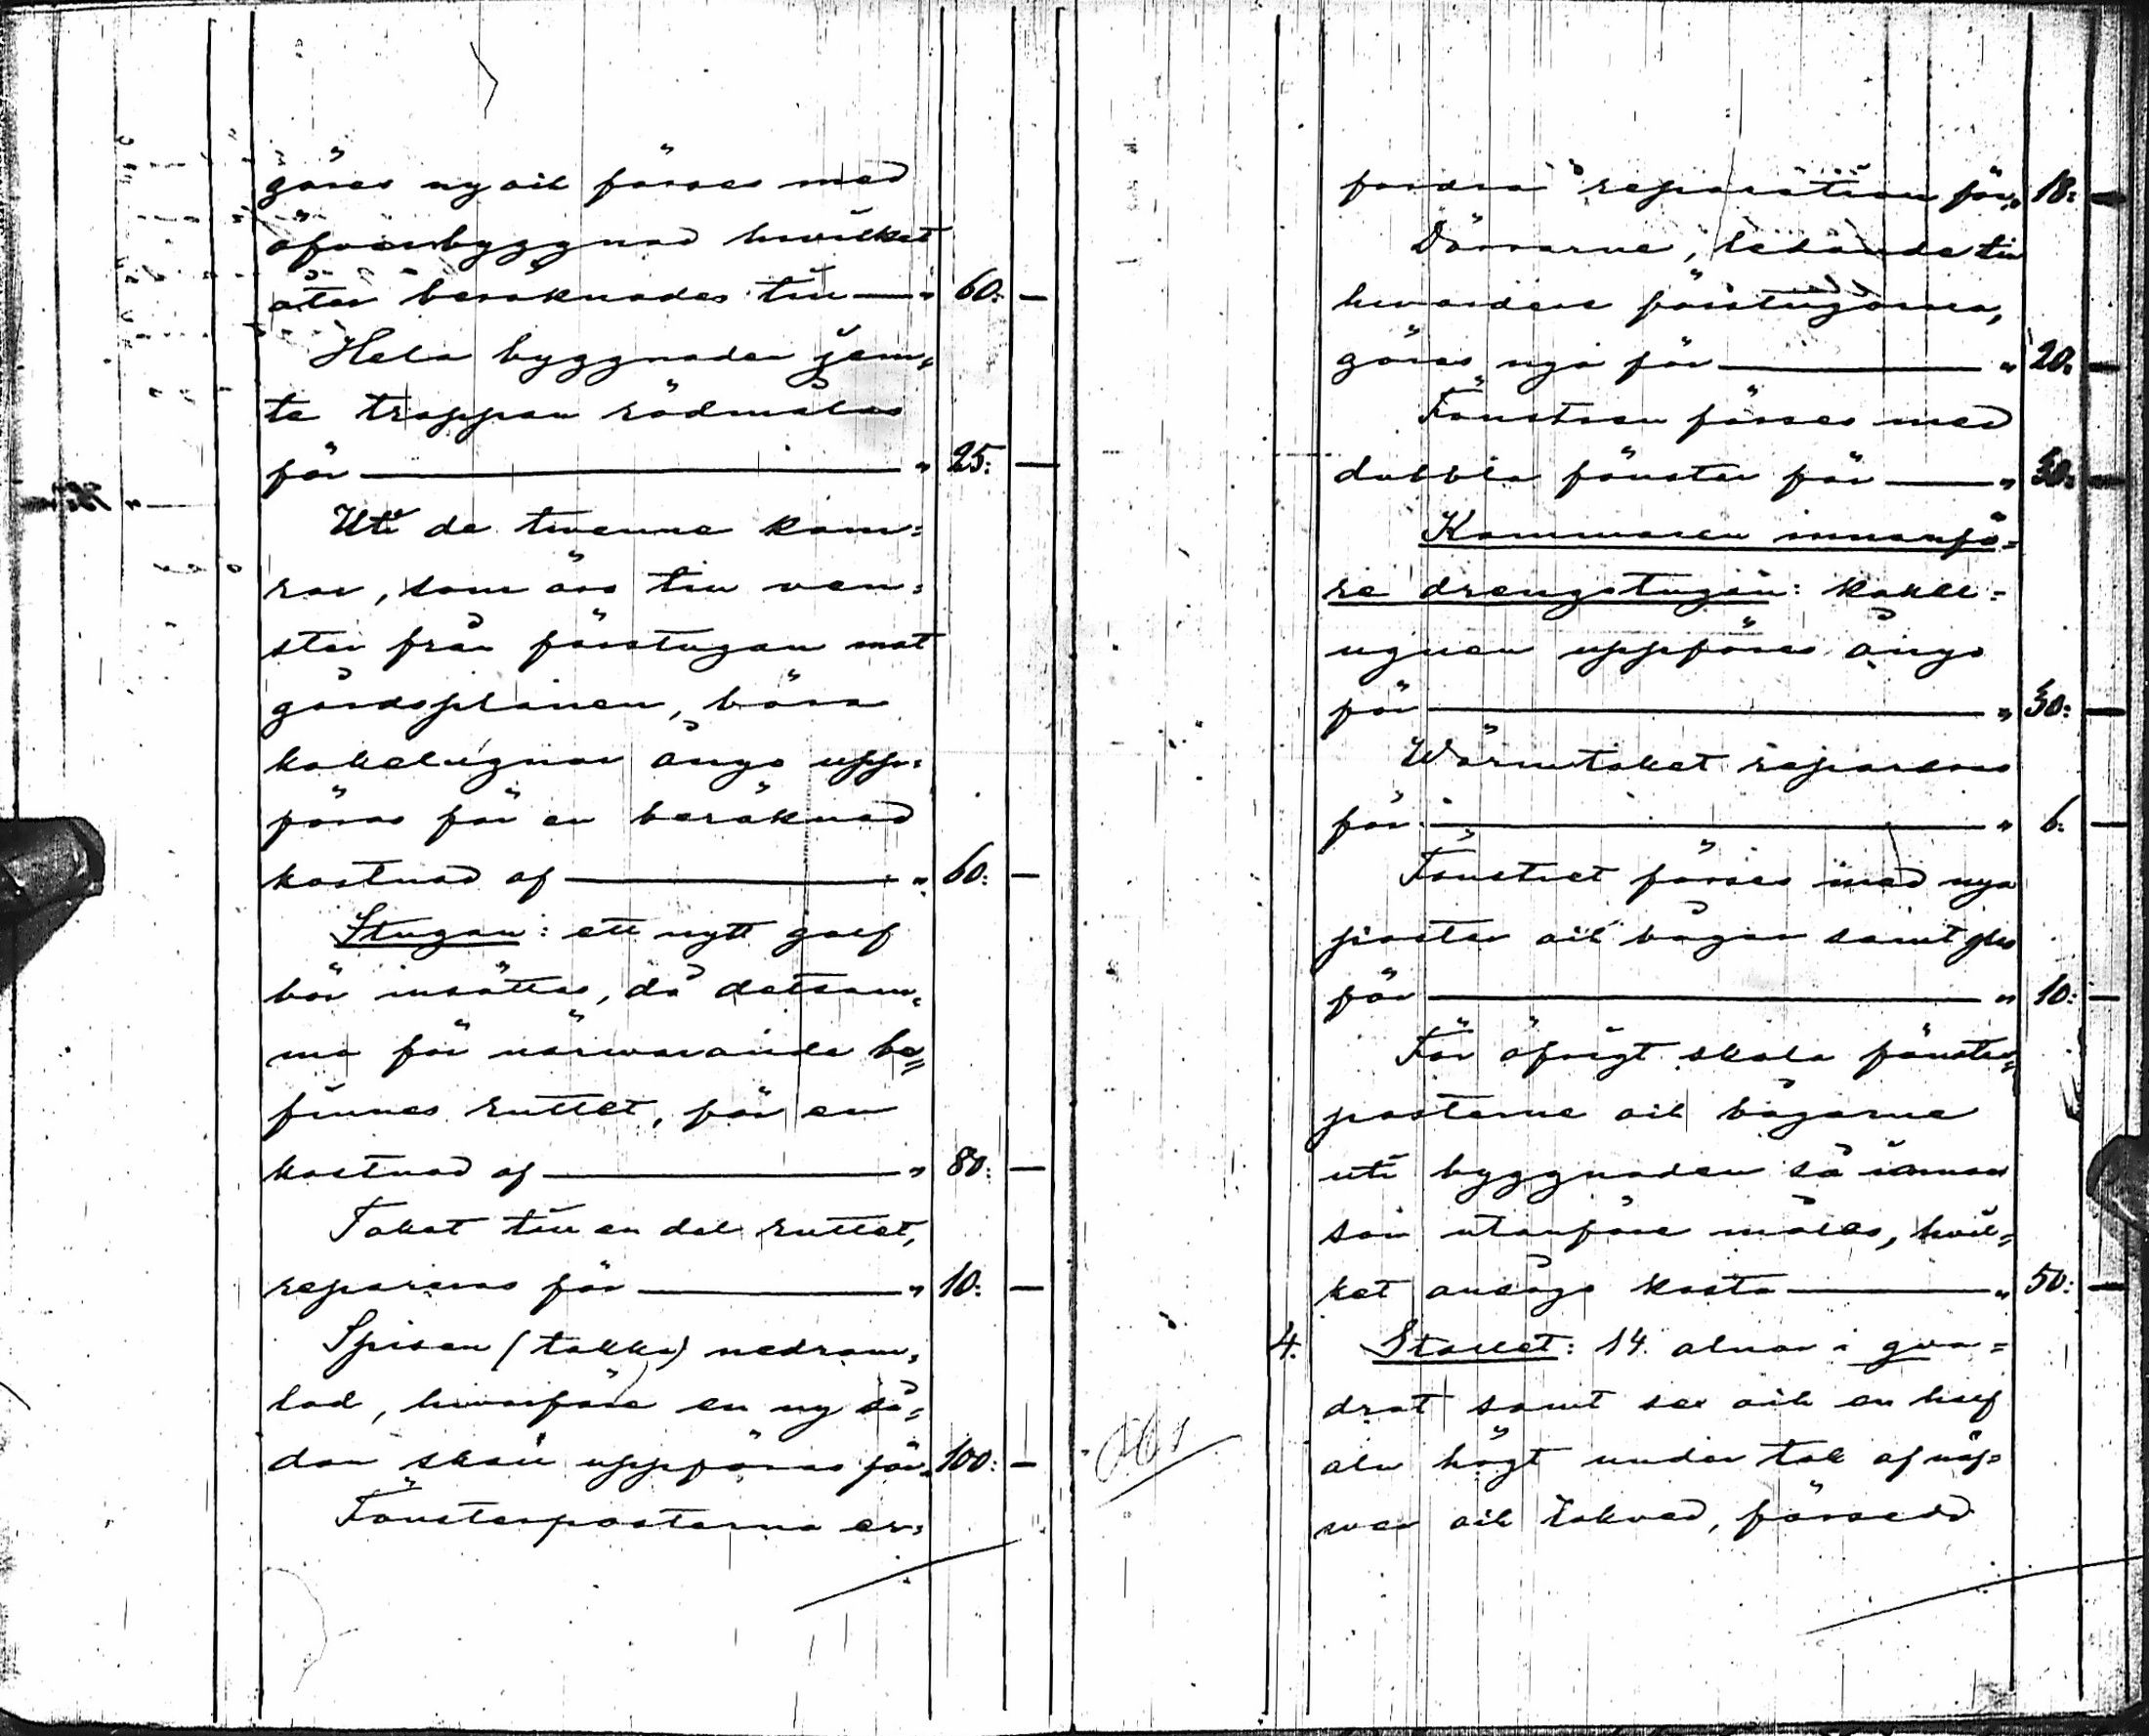 göras ny och förses med
öfverbyggnad hvilket
åter beräknades till — " 60: —
Hela byggnaden jem=
te trappan rödmålas
för — " 25: —
Uti de tvenne kam=
rar, som äro till ven=
ster från förstugan mot
gårdsplanen, böra
kakelugnar ånyo upp=
föras för en beräknad
kostnad af — " 60: —
Stugan: ett nytt golf
bör insättas, då detsam=
ma för närwarande be=
finnes ruttet, för en
kostnad af — " 80: —
Taket till en del ruttet,
repareras för — " 10: —
Spisen (takka) nedram=
lad, hvarföre en ny så=
dan skall uppföras för " 100: —
Fönsterposterna er=
fordra reparation för " 18: —
Dörrarne, ledande till
hvardera förstugorna,
göras nya för — " 20: —
Fönstren förses med
dubbla fönster för — " 30: —
Kammaren innanfö=
re drengstugan: kakel=
ugnen uppföres ånyo
för — " 30: —
Wärmtaket repareras
för — " 6: —
Fönstret förses med nya
poster och bågar samt glas
för — " 10: —
För öfrigt skola fönster=
posterne och bågarne
uti byggnaden så innan
som utanföre målas, hvil=
ket ansågs kosta — " 50: —
4. Stallet: 14 alnar i qva=
drat samt sex och en half
aln högt under tak af näf=
wer och takved, försedd